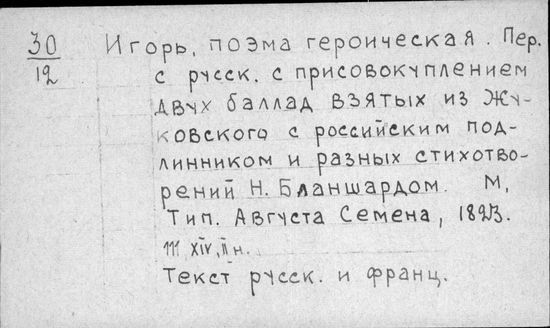 30
12
Игорь, поэма героическая. Пер.
с русск. с присовокуплением
двух баллад взятых из Жу-
ковского с российским под-
линником и разных стихотво-
рений Н. Бланшардом. М,
Тип. Августа Семена, 1823.
111 XIV, II н.
Текст русск. и франц.